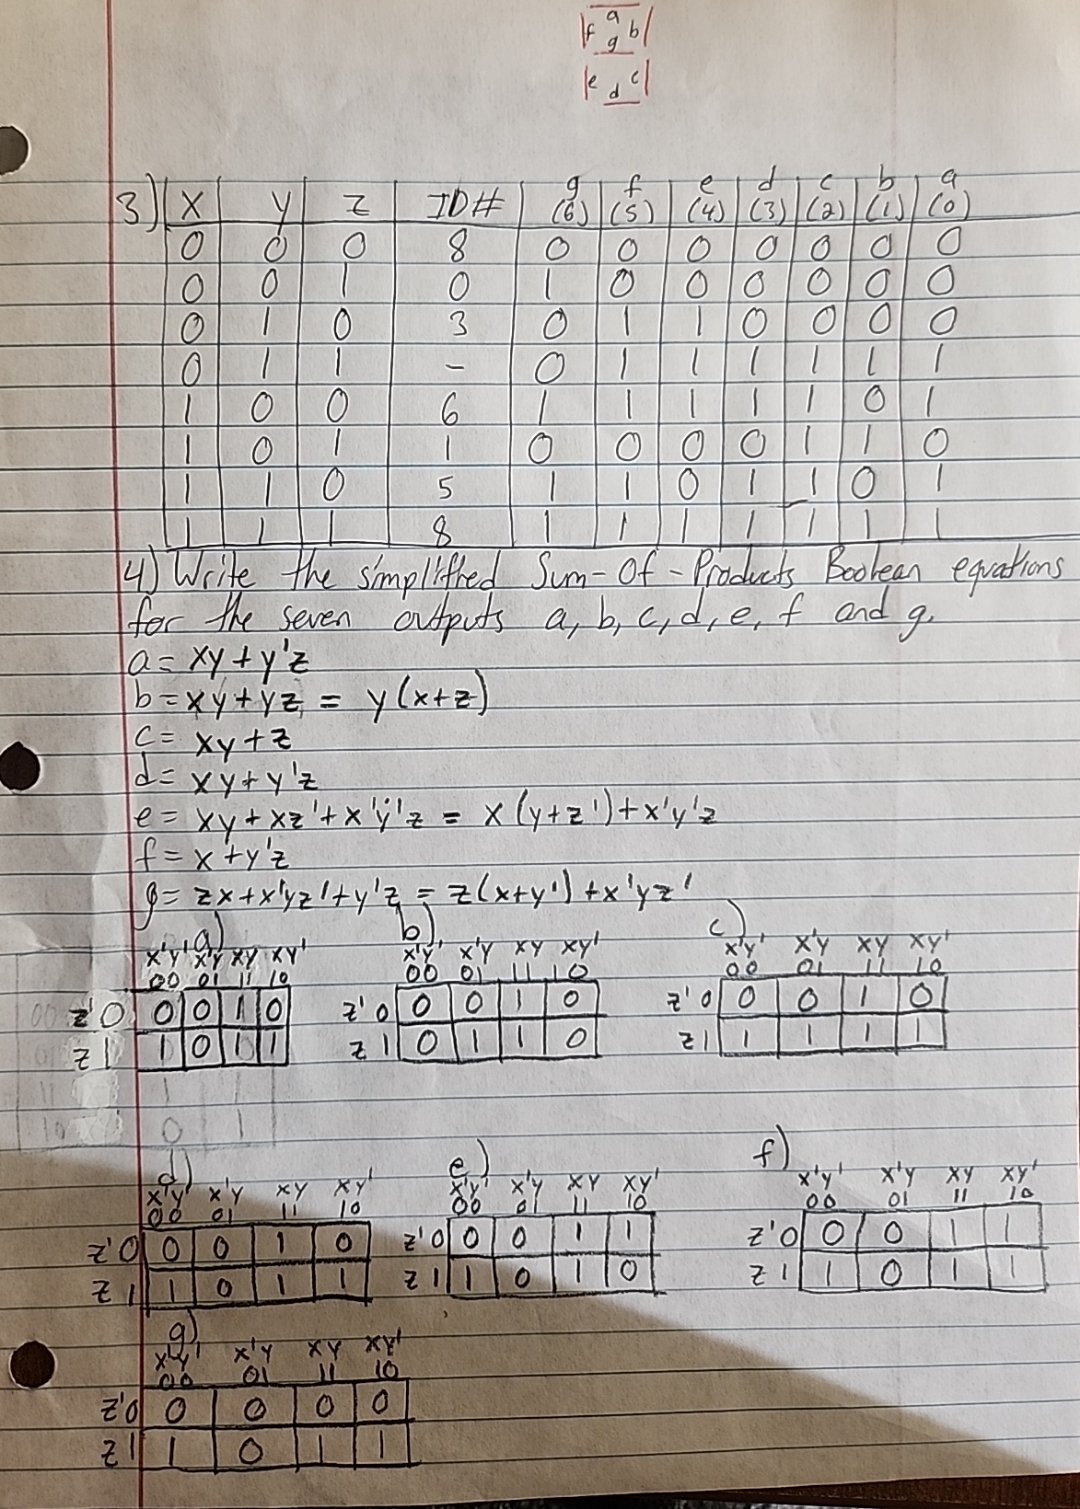 a
f b
g
e c
d
3) X y z ID# g (6) f (5) e (4) d (3) c (2) b (1) a (0)
0 0 0 8 0 0 0 0 0 0 0
0 0 1 0 1 0 0 0 0 0 0
0 1 0 3 0 1 1 0 0 0 0
0 1 1 - 0 1 1 1 1 1 1
1 0 0 6 1 1 1 1 1 0 1
1 0 1 1 0 0 0 0 1 1 0
1 1 0 5 1 1 0 1 1 0 1
1 1 1 8 1 1 1 1 1 1 1
4) Write the simplified Sum-Of-Products Boolean equations
for the seven outputs a, b, c, d, e, f and g.
a = xy + y'z
b = xy + yz = y(x+z)
c = xy + z
d = xy + y'z
e = xy + xz' + x'y'z = x(y+z') + x'y'z
f = x + y'z
g = zx + x'yz' + y'z = z(x+y') + x'yz'
a) b) c)
x'y' x'y xy xy' x'y' x'y xy xy' x'y' x'y xy xy'
00 01 11 10 00 01 11 10 00 01 11 10
z' 0 0 0 1 0 z' 0 0 0 1 0 z' 0 0 0 1 0
z 1 1 0 1 1 z 1 0 1 1 0 z 1 1 1 1 1
d) e) f)
x'y' x'y xy xy' x'y' x'y xy xy' x'y' x'y xy xy'
00 01 11 10 00 01 11 10 00 01 11 10
z' 0 0 0 1 0 z' 0 0 0 1 1 z' 0 0 0 1 1
z 1 1 0 1 1 z 1 1 0 1 0 z 1 1 0 1 1
g)
x'y' x'y xy xy'
00 01 11 10
z' 0 0 0 0 0
z 1 1 0 1 1